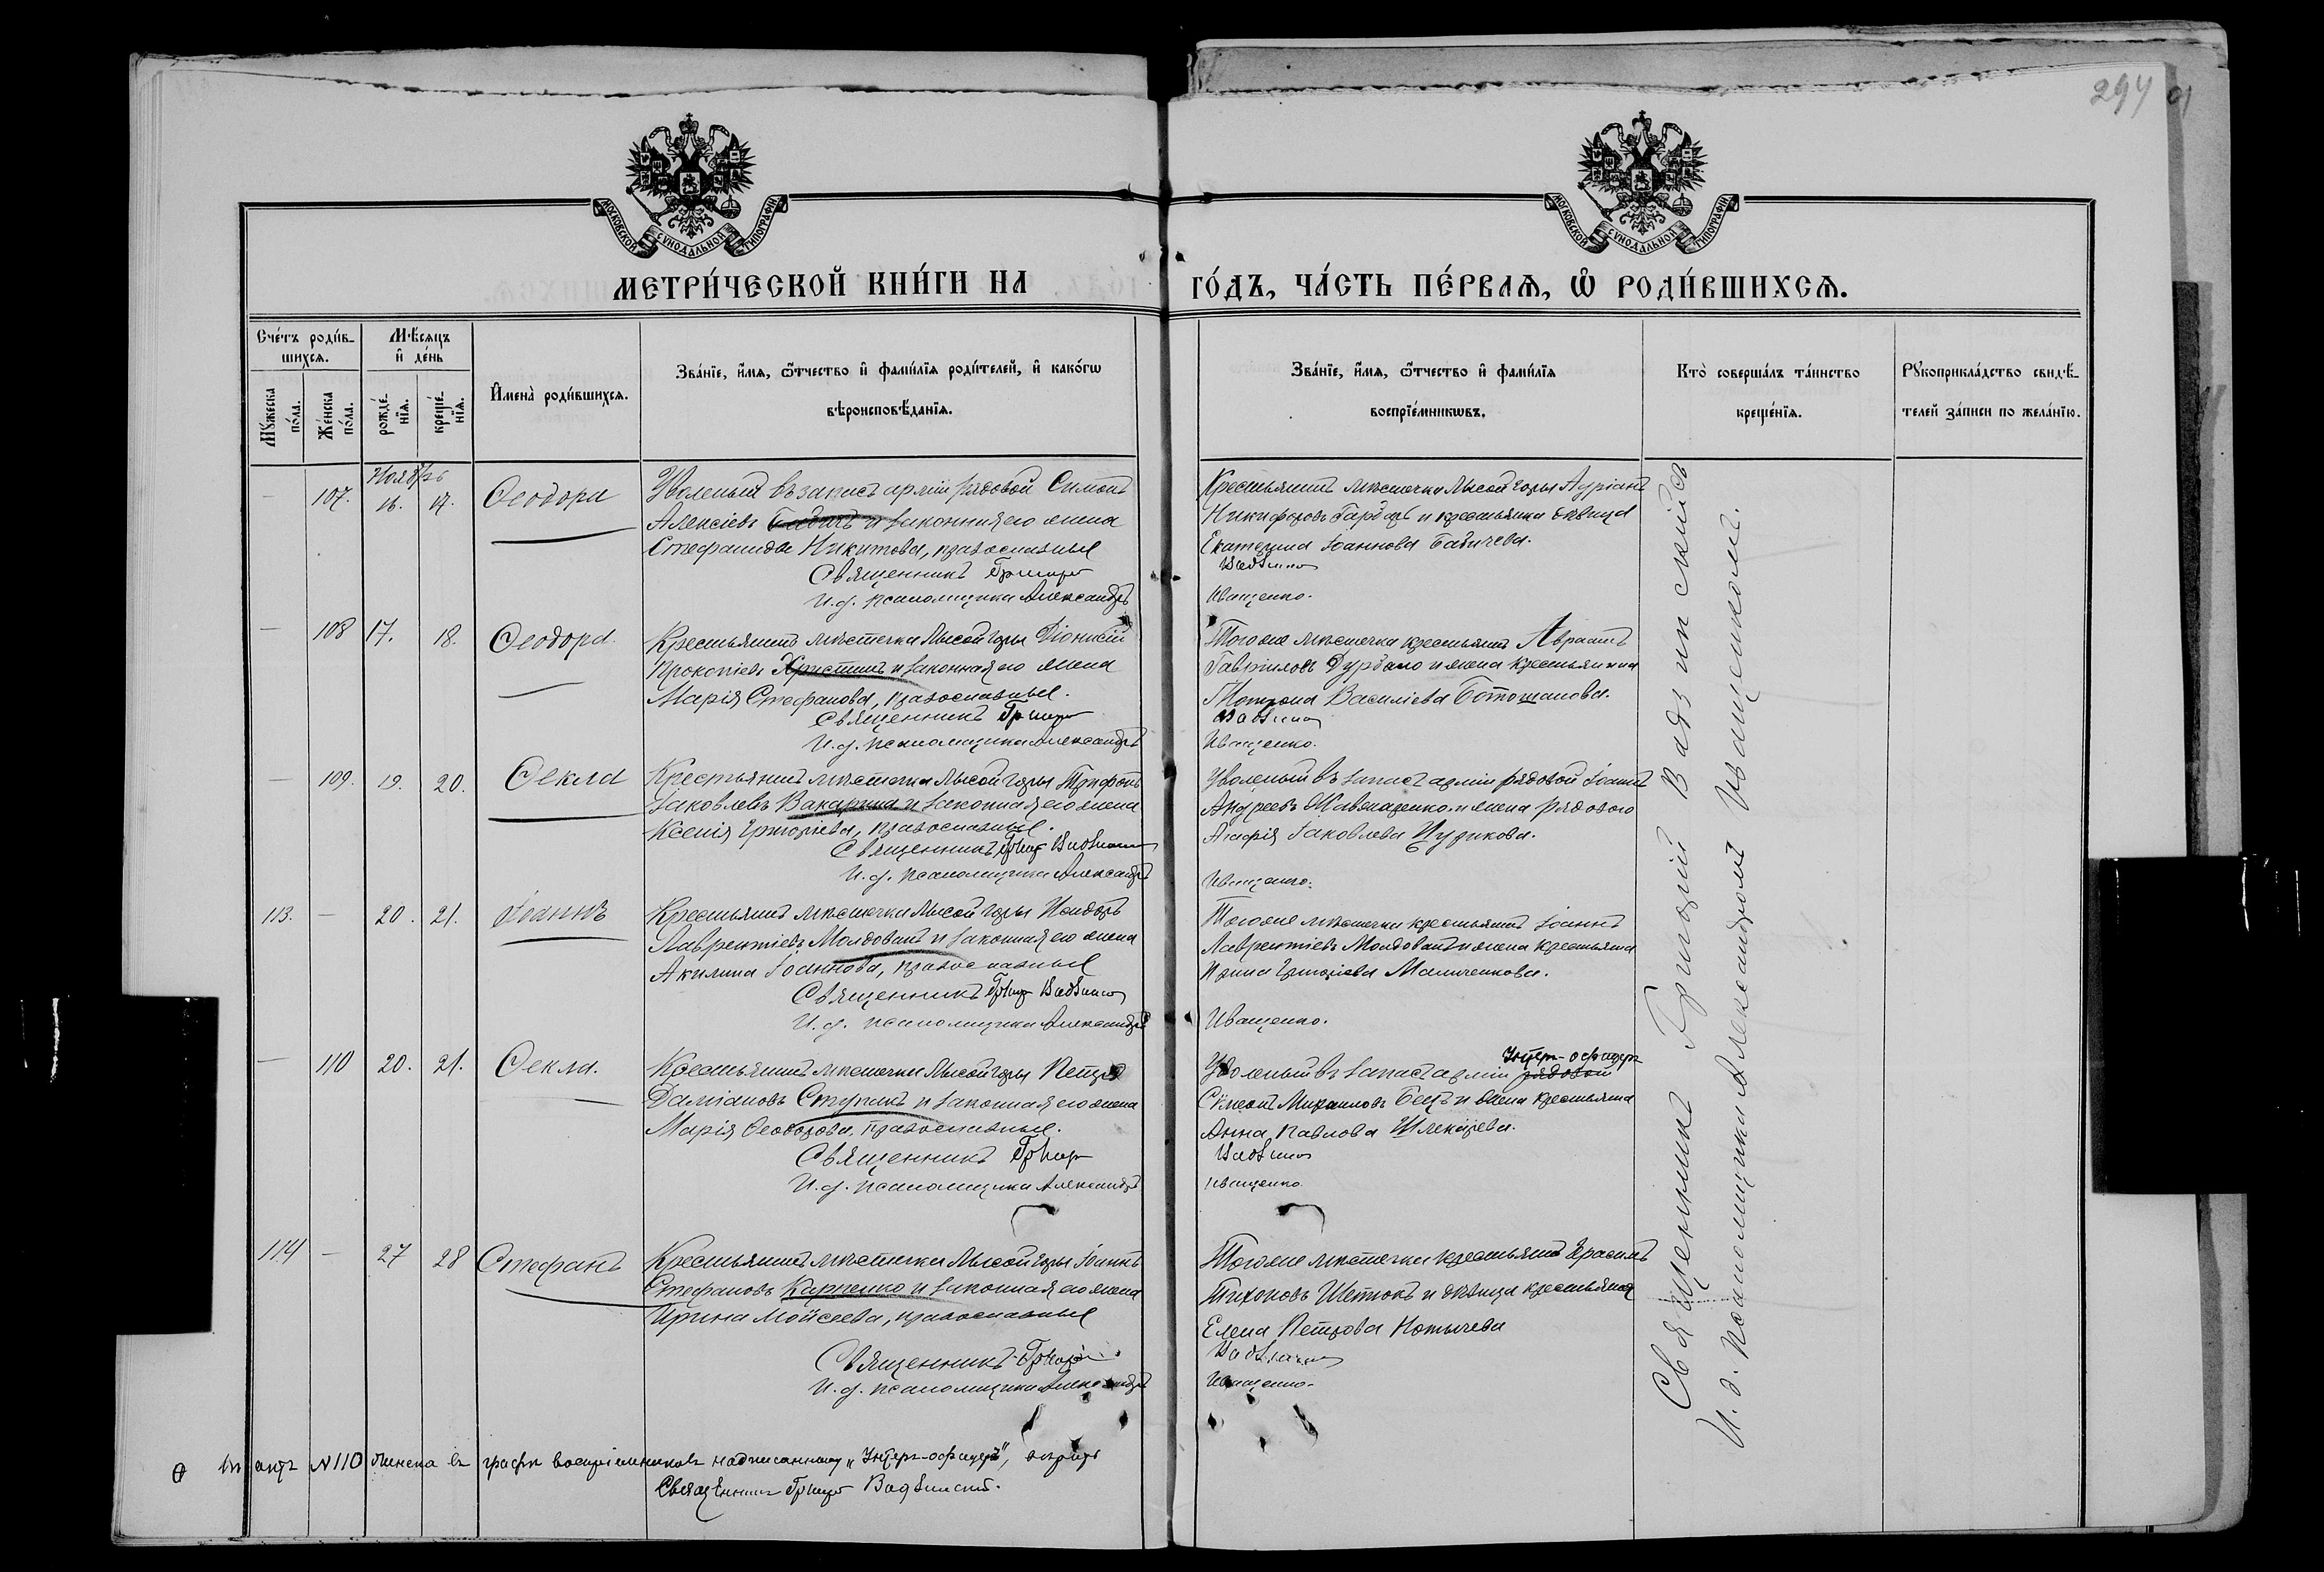 294
МОСКОВСКОЙ СУНОДАЛЬНОЙ ТИПОГРАФІИ
МОСКОВСКОЙ СУНОДАЛЬНОЙ ТИПОГРАФІИ
МЕТРИ́ЧЕСКОЙ КНИ́ГИ НА ГО́ДЪ, ЧА́СТЬ ПЕ́РВАѦ, Ѡ҆ РОДИ́ВШИХСѦ.
Сче́тъ роди́в-
шихсѧ.
Мꙋ́жеска по́ла.
Же́нска по́ла.
Мѣ́сѧцъ и҆ де́нь
рожде́-нїѧ.
креще́-нїѧ.
И҆мена̀ роди́вшихсѧ.
Зва́нїе, и҆́мѧ, ѻ҆́тчество и҆ фами́лїѧ роди́телей, и҆ како́гѡ
вѣроисповѣ́данїѧ.
Зва́нїе, и҆́мѧ, ѻ҆́тчество и҆ фами́лїѧ
воспрїе́мникѡвъ.
Кто̀ соверша́лъ та́инство
креще́нїѧ.
Рꙋкоприкла́дство свидѣ́-
телей за́писи по жела́нїю.
Ноябрь
— 107. 16. 17. Ѳеодора
Уволеный въ запасъ арміи рядовой Симонъ
Алексіевъ Бабичъ и законная его жена
Стефанида Никитова, православные
Священникъ Григор
И. д. псаломщика Александръ
Крестьянинъ мѣстечка Лысой горы Адріанъ
Никифоровъ Гарбазъ и крестьянка дѣвица
Екатерина Іоаннова Бабичева.
Вадзинс
Иващенко.
— 108 17. 18. Ѳеодора.
Крестьянинъ мѣстечка Лысой горы Діонисій
Прокопіевъ и законная его жена
Марія Стефанова, православные.
Священникъ Григор
И. д. псаломщика Александръ
Тогоже мѣстечка крестьянинъ Авраамъ
Гавриловъ Дурбало и жена крестьянина
Матрона Василіева Ботошанова.
Вадзинс
Иващенко.
— 109. 19. 20. Ѳекла
Крестьянинъ мѣстечка Лысой горы Трифонъ
Іаковлевъ Вакарина и законная его жена
Ксенія Григоріева, православные.
Священникъ Григор Вадзинс
И. д. псаломщика Александръ
Уволеный въ запасъ арміи рядовой Іоаннъ
Андреевъ и жена рядового
Агафія Іаковлева Цурикова.
Иващенко.
113. — 20. 21. Іоаннъ
Крестьянинъ мѣстечка Лысой горы Исидоръ
Лаврентіевъ Молдованъ и законная его жена
Акилина Іоаннова, православные
Священникъ Григор Вадзинс
И. д. псаломщика Александръ
Тогоже мѣстечки крестьянинъ Іоаннъ
Лаврентіевъ Молдованъ и жена крестьянина
Ирина Григоріева Маниченкова.
Иващенко.
— 110 20. 21. Ѳекла.
Крестьянинъ мѣстечка Лысой горы Петръ
Даміановъ Ступакъ и законная его жена
Марія Ѳеодорова, православные.
Священникъ Григор
И. д. псаломщика Александръ
Унтеръ-офицеръ
Уволеный въ запасъ арміи рядовой
Сѵмеонъ Михаиловъ Бецъ и жена крестьянина
Анна Павлова Шлекарева.
Вадзинс
Иващенко.
114 — 27 28 Стефанъ
Крестьянинъ мѣстечка Лысой горы Іоаннъ
Стефановъ Карпенко и законная его жена
Ирина Мойсеева, православные
Священникъ Григор
И. д. псаломщика Александръ
Тогоже мѣстечка крестьянинъ Герасимъ
Тихоновъ Шетюкъ и дѣвица крестьянка
Елена Петрова Копычева
Вадзинс
Иващенко.
Священникъ Григорій Вадзинскій съ
И. д. псаломщика Александромъ Иващенкомъ.
Въ актѣ №110 женска въ графѣ воспріемниковъ надписанному „Унтеръ-офицеръ", вѣрить
Священникъ Григор Вадзинскій.